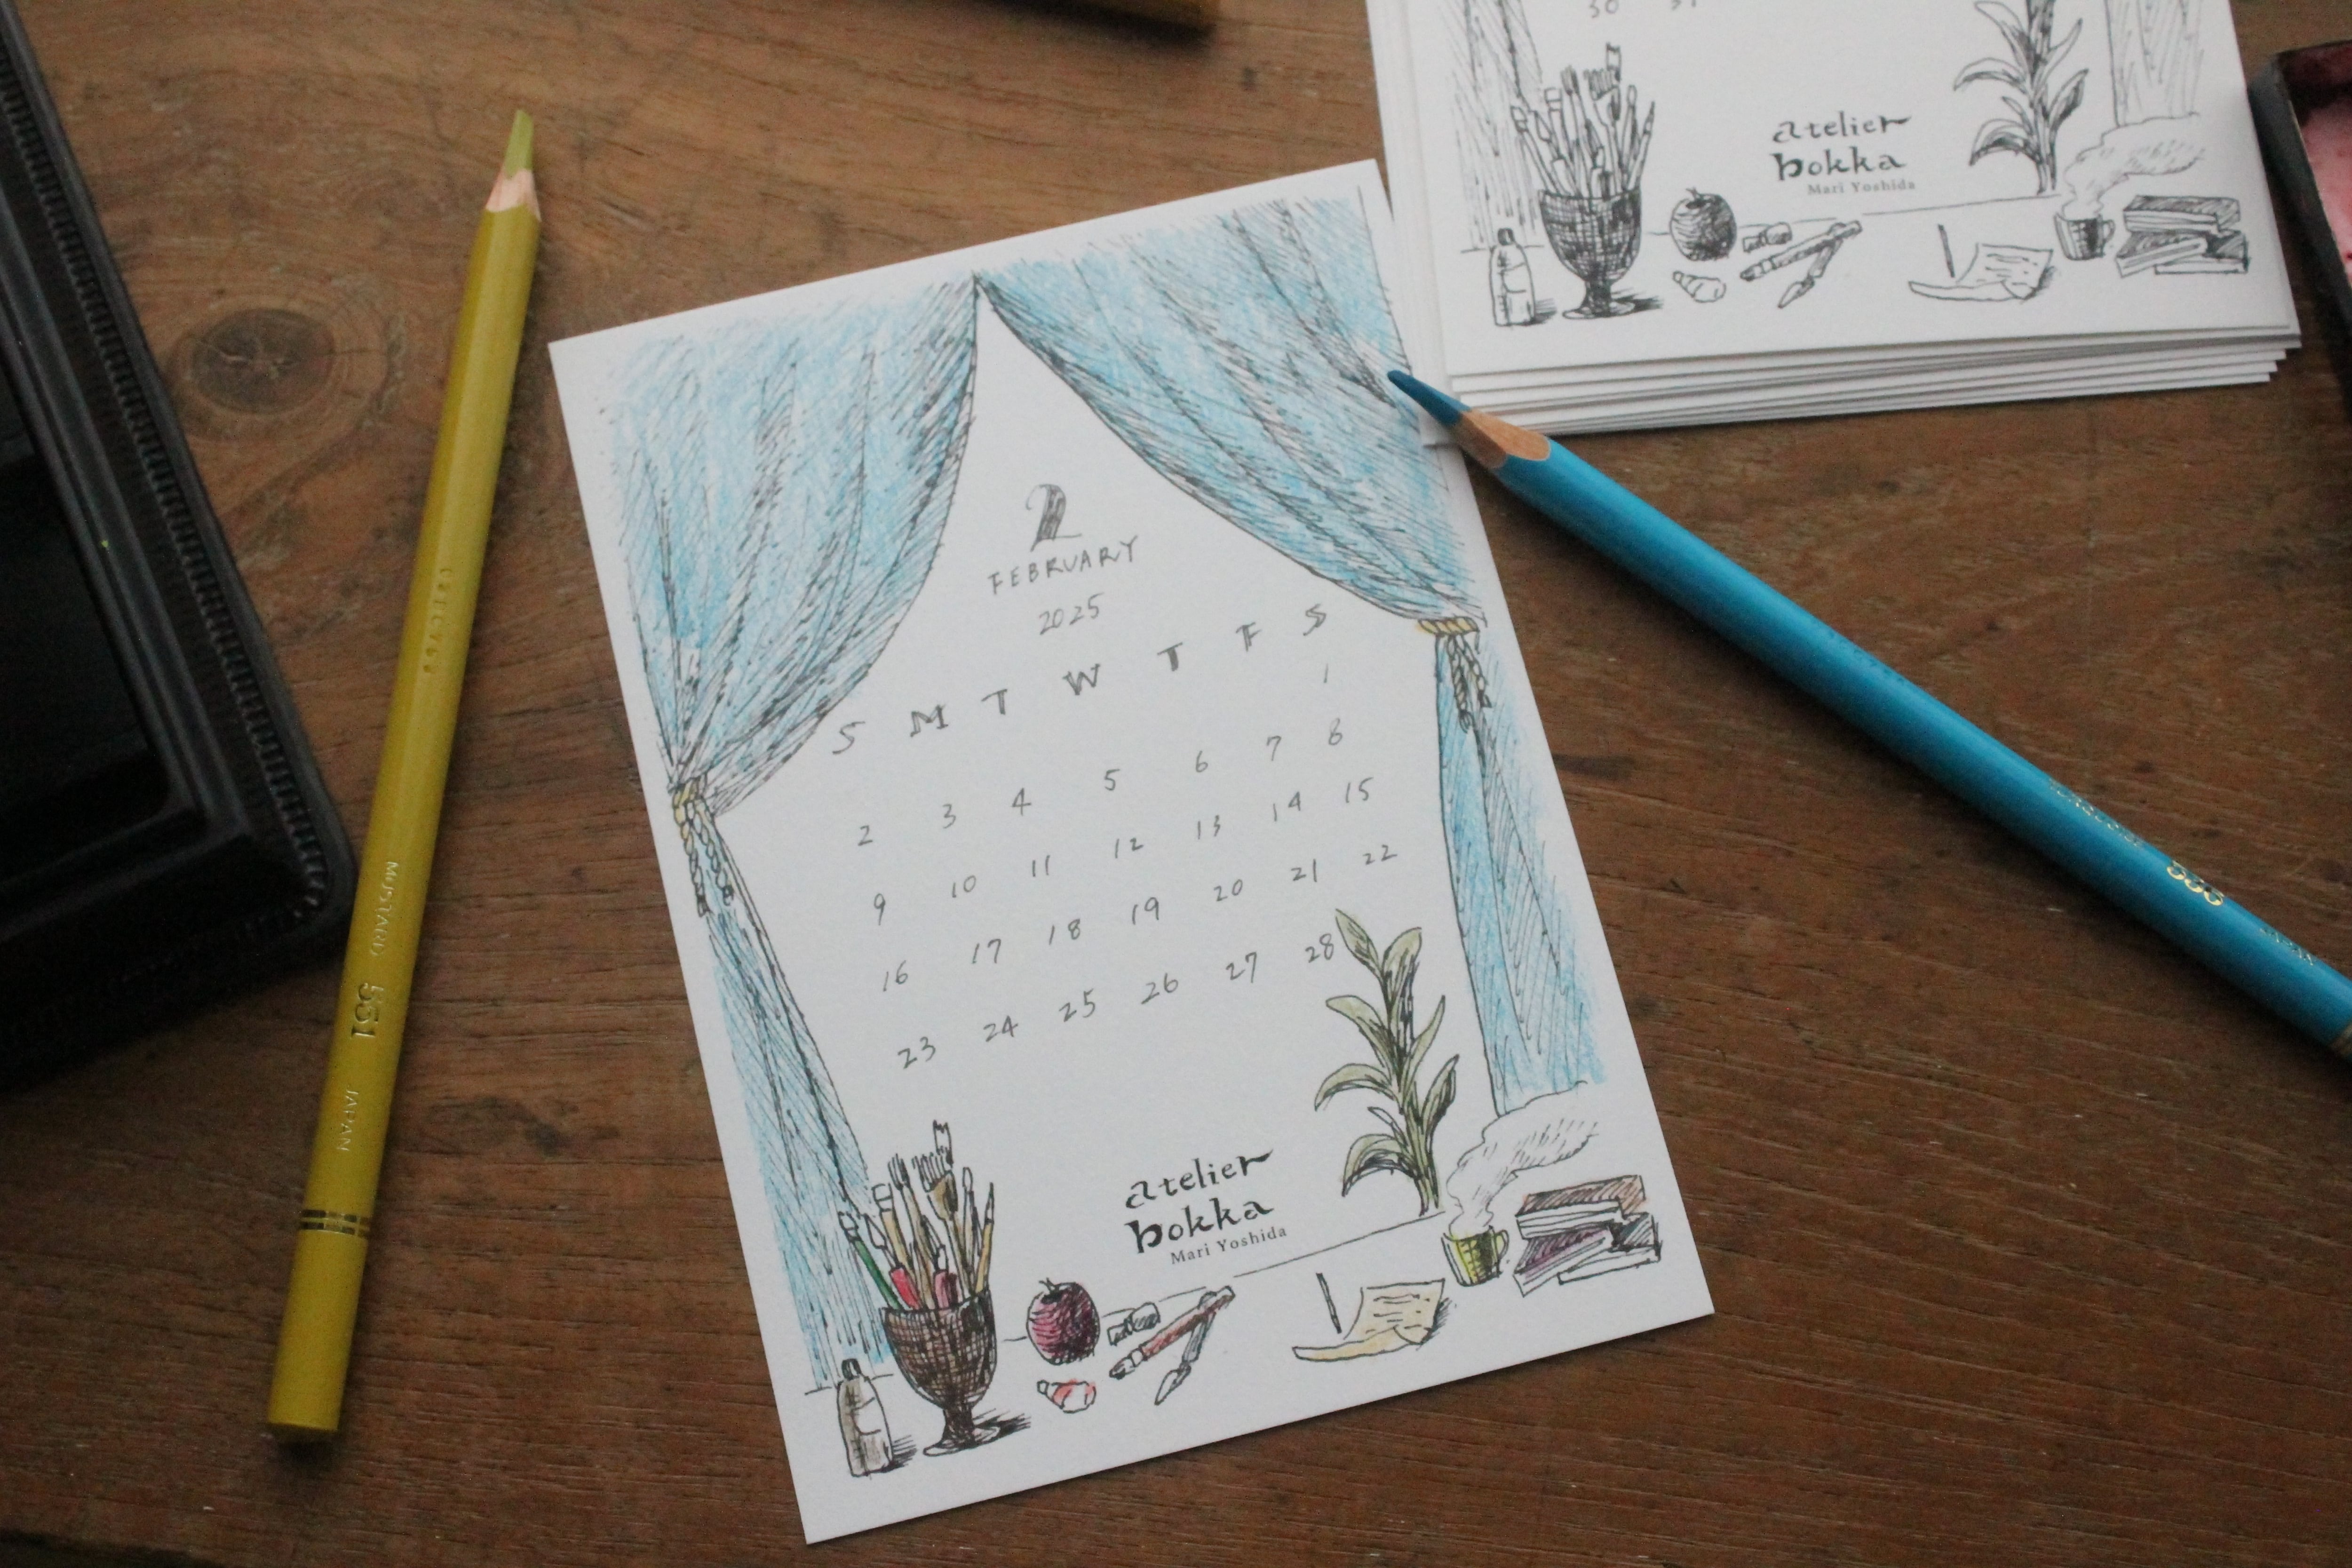 30 31
atelier
bokka
Mari Yoshida
2
FEBRUARY
2025
S M T W T F S
1
2 3 4 5 6 7 8
9 10 11 12 13 14 15
16 17 18 19 20 21 22
23 24 25 26 27 28
atelier
bokka
Mari Yoshida
MUSTARD 551 JAPAN